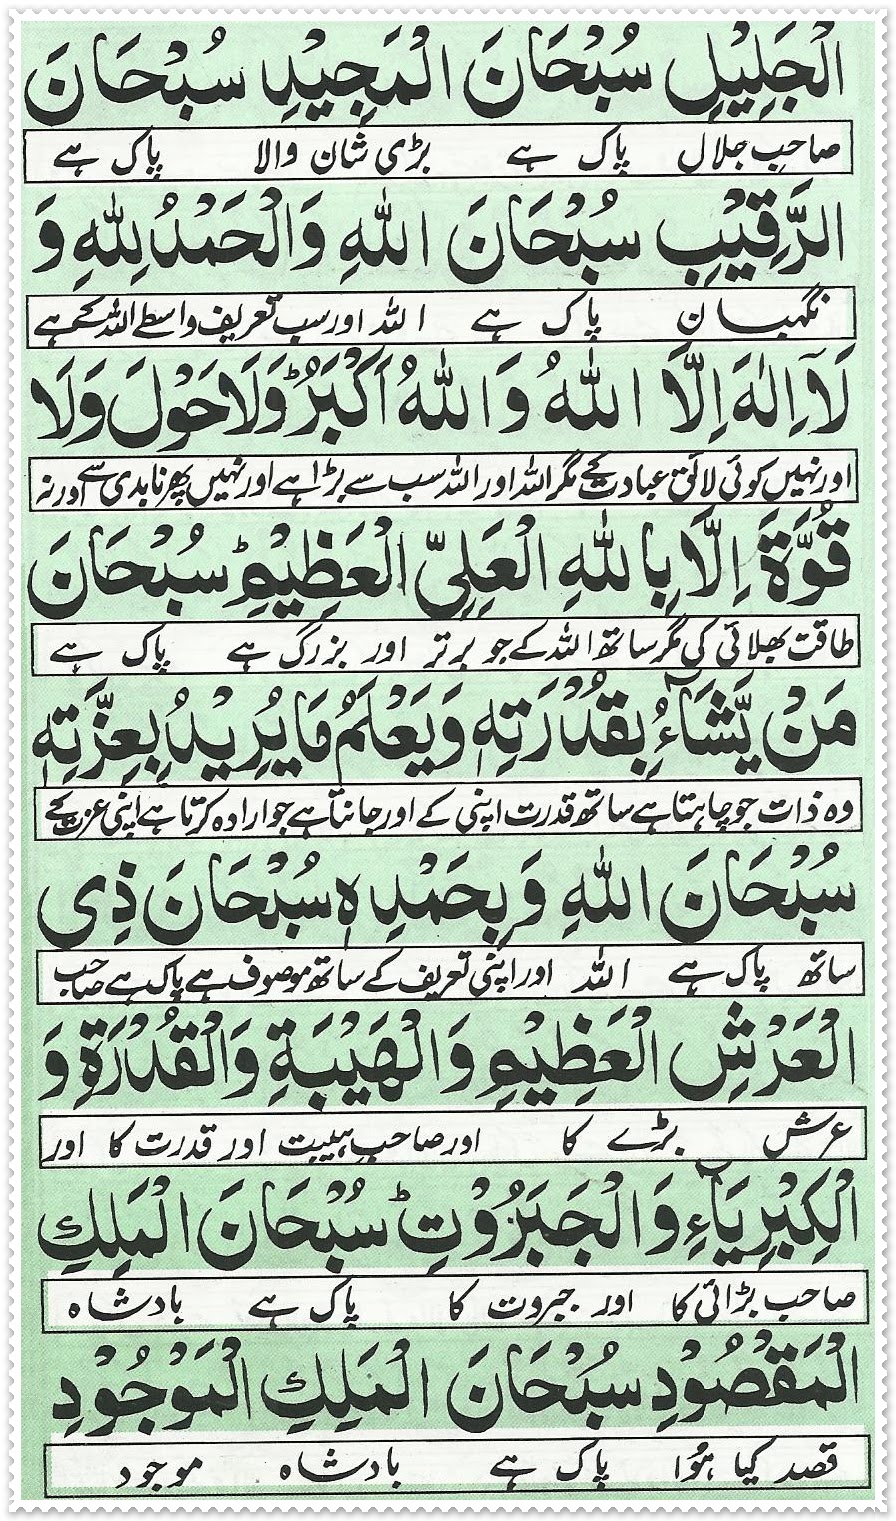 الْجَلِيْلِ سُبْحَانَ الْمَجِيْدِ سُبْحَانَ
صاحبِ جلال پاک ہے بڑی شان والا پاک ہے
الرَّقِيْبِ سُبْحَانَ اللّٰهِ وَالْحَمْدُ لِلّٰهِ وَ
نگہبان پاک ہے اللہ اور سب تعریف واسطے اللہ کے ہے
لَآ اِلٰهَ اِلَّا اللّٰهُ وَ اللّٰهُ اَكْبَرُ ؕ وَلَا حَوْلَ وَلَا
اور نہیں کوئی لائق عبادت کے مگر اللہ اور اللہ سب سے بڑا ہے اور نہیں پھرنا بدی سے اور نہ
قُوَّةَ اِلَّا بِاللّٰهِ الْعَلِىِّ الْعَظِيْمِ ؕ سُبْحَانَ
طاقت بھلائی کی مگر ساتھ اللہ کے جو برتر اور بزرگ ہے پاک ہے
مَنْ يَّشَآءُ بِقُدْرَتِهٖ وَيَعْلَمُ مَا يُرِيْدُ بِعِزَّتِهٖ
وہ ذات جو چاہتا ہے ساتھ قدرت اپنی کے اور جانتا ہے جو ارادہ کرتا ہے اپنی عزت کے
سُبْحَانَ اللّٰهِ وَ بِحَمْدِهٖ سُبْحَانَ ذِى
ساتھ پاک ہے اللہ اور اپنی تعریف کے ساتھ موصوف ہے پاک ہے صاحب
الْعَرْشِ الْعَظِيْمِ وَ الْهَيْبَةِ وَ الْقُدْرَةِ وَ
عرش بڑے کا اور صاحبِ ہیبت اور قدرت کا اور
الْكِبْرِيَآءِ وَ الْجَبَرُوْتِ ؕ سُبْحَانَ الْمَلِكِ
صاحب بڑائی کا اور جبروت کا پاک ہے بادشاہ
الْمَقْصُوْدِ سُبْحَانَ الْمَلِكِ الْمَوْجُوْدِ
قصد کیا ہُوا پاک ہے بادشاہ موجود